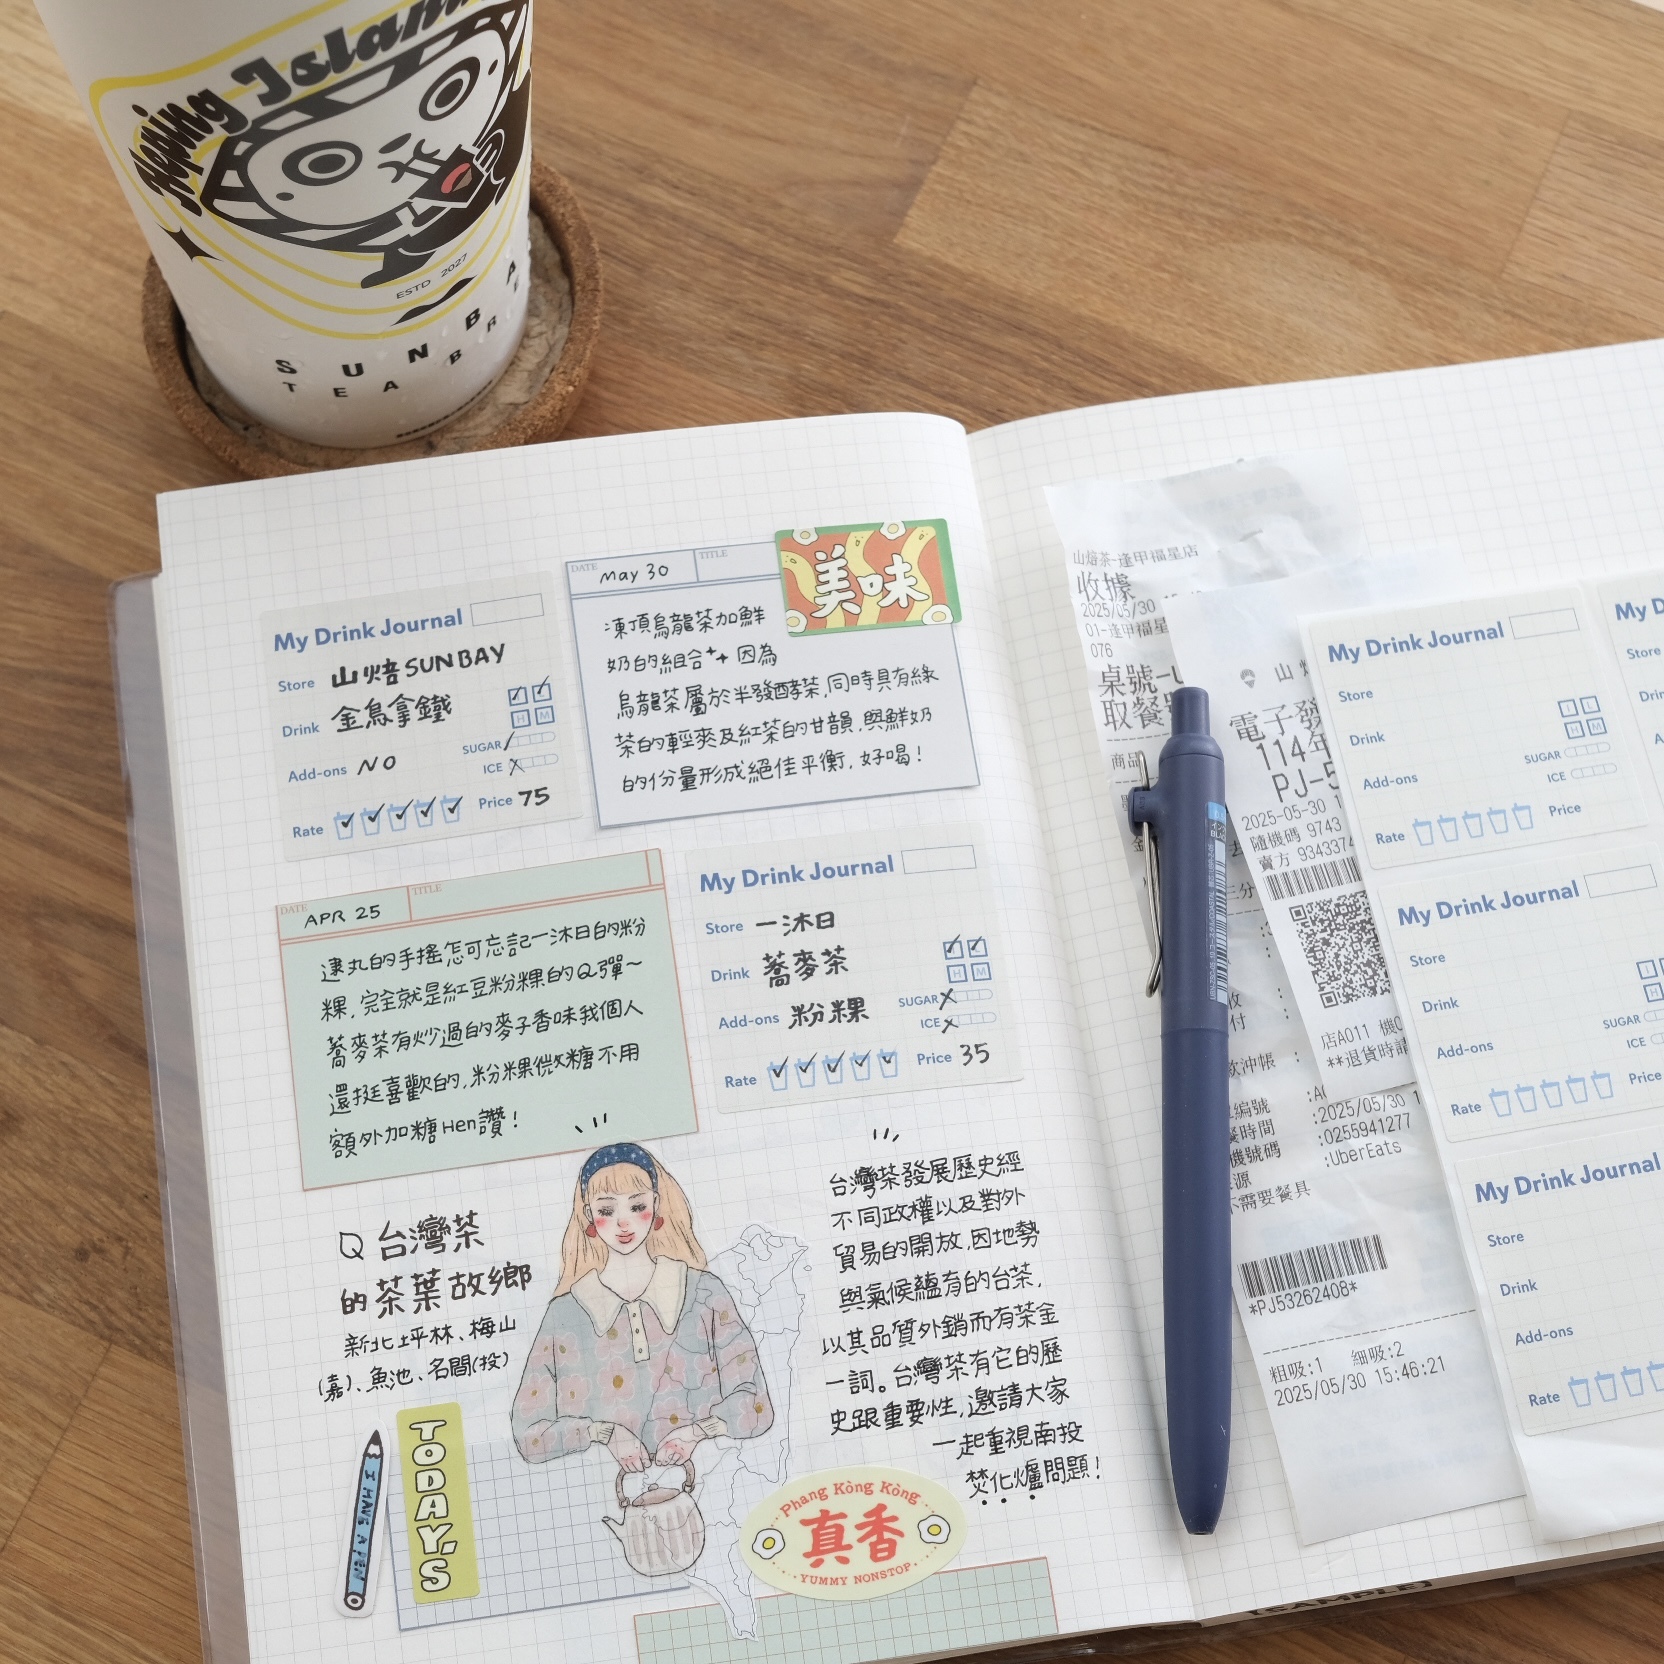 Hoping Island
ESTD 2027
SUNBA
TEA BRE
My Drink Journal
Store 山焙SUNBAY
Drink 金鳥拿鐵
H M
Add-ons NO
SUGAR
ICE
Rate
Price 75
DATE May 30 TITLE
美味
凍頂烏龍茶加鮮
奶的組合 因為
烏龍茶屬於半發酵茶,同時具有綠
茶的輕爽及紅茶的甘韻,與鮮奶
的份量形成絕佳平衡,好喝!
DATE APR 25 TITLE
逮丸的手搖怎可忘記一沐日的粉
粿,完全就是紅豆粉粿的Q彈~
蕎麥茶有炒過的麥子香味我個人
還挺喜歡的,粉粿微糖不用
額外加糖Hen讚!
My Drink Journal
Store 一沐日
Drink 蕎麥茶
H M
Add-ons 粉粿
SUGAR
ICE
Rate
Price 35
台灣茶
的茶葉故鄉
新北坪林、梅山
(嘉)、魚池、名間(投)
台灣茶發展歷史經
不同政權以及對外
貿易的開放,因地勢
與氣候蘊育的台茶,
以其品質外銷而有茶金
一詞。台灣茶有它的歷
史跟重要性,邀請大家
一起重視南投
焚化爐問題!
I HAVE A PEN
TODAY'S
Phang Kòng Kòng
真香
YUMMY NONSTOP
山焙茶-逢甲福星店
收據
2025/05/30
01-逢甲福星
076
桌號-U
取餐
商品
山
電子發
114年
PJ-5
2025-05-30 1
隨機碼 9743
賣方 9343374
店A011 機0
**退貨時請
付 :
沖帳 :
編號 :A
時間 :2025/05/30 1
機號碼 :0255941277
源 :UberEats
不需要餐具
*PJ53262408*
粗吸:1 細吸:2
2025/05/30 15:46:21
My Drink Journal
Store
Drink
I L
H M
Add-ons
SUGAR
ICE
Rate
Price
My D
Store
My Drink Journal
Store
Drink
Add-ons
SUGAR
ICE
Rate
Price
My Drink Journal
Store
Drink
Add-ons
Rate